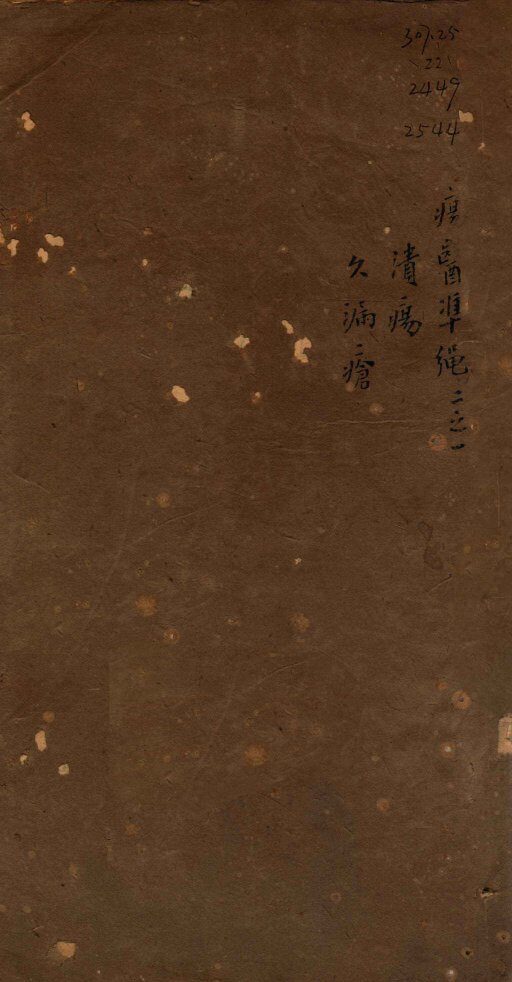 307.25
221
2449
2544
瘍醫準繩 二之一
潰瘍
久漏瘡